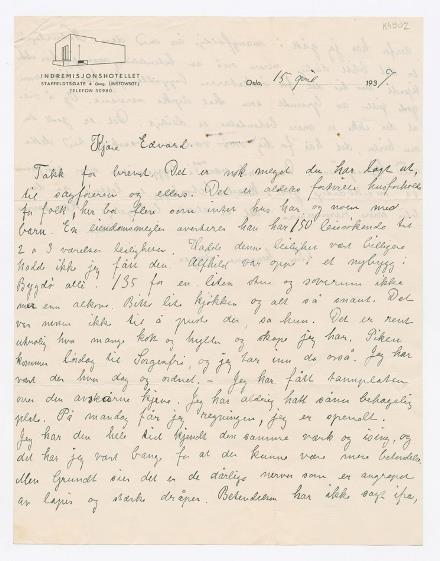 K4902
INDREMISJONSHOTELLET
STAFFELDTSGATE 4 (inng. UNIONSGT.)
TELEFON 30980
Oslo, 15 april 1937.
Kjære Edvard.
Takk for brevet. Det er nok meget du har lagt ut,
til sagføreren og ellers. Det er aldeles
for folk, her bor flere som intet hus har, og noen med
barn. En eiendomsmegler averterer han har 150 leiesökende til
2 o 3 værelses leiligheter. Hadde denne leilighet vært billigere
hadde ikke jeg fått den. Alfhild var oppe i et nybygg i
Bygdö allé. 135 for en liten stue og soverum ikke
mer enn alkove. Bitte lite kjökken og alt så smaat. Det
var noen ikke til å, sa hun. Det er rent
utrolig hva mange kott og hyller og skape jeg har. Piken
kommer lördag til Sorgenfri, og jeg tar inn da også. Jeg har
vært der hver dag og ordnet. – Jeg har fått
over den kjeve. Jeg har aldrig hatt sånn behagelig
plate. På mandag får jeg regningen, jeg er spendt.
Jeg har den hele tid kjendt den samme verk og, og
det har jeg vært bange for at der kunne være mere betendelse.
Men Grundt sier det er de dårlige nerver som er angrepet
av lapis og sterke dråper. Betendelsen har ikke sagt ifra,